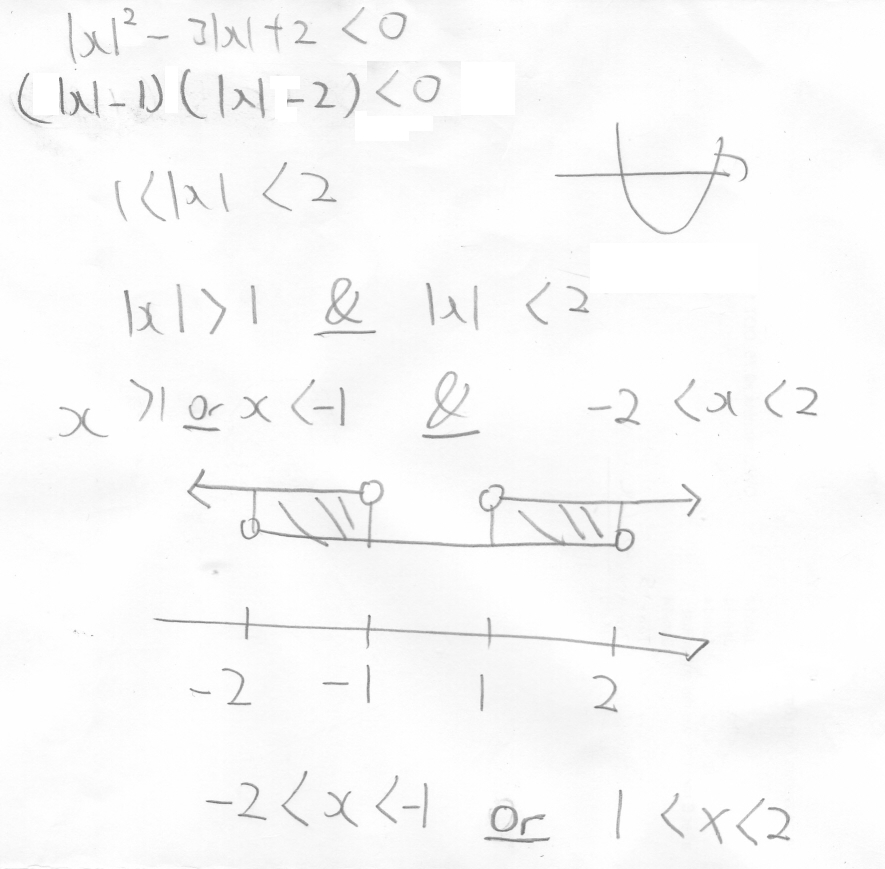 |x|² - 3|x| + 2 < 0
(|x| - 1)(|x| - 2) < 0
1 < |x| < 2
|x| > 1 & |x| < 2
x > 1 or x < -1 & -2 < x < 2
-2 -1 1 2
-2 < x < -1 or 1 < x < 2